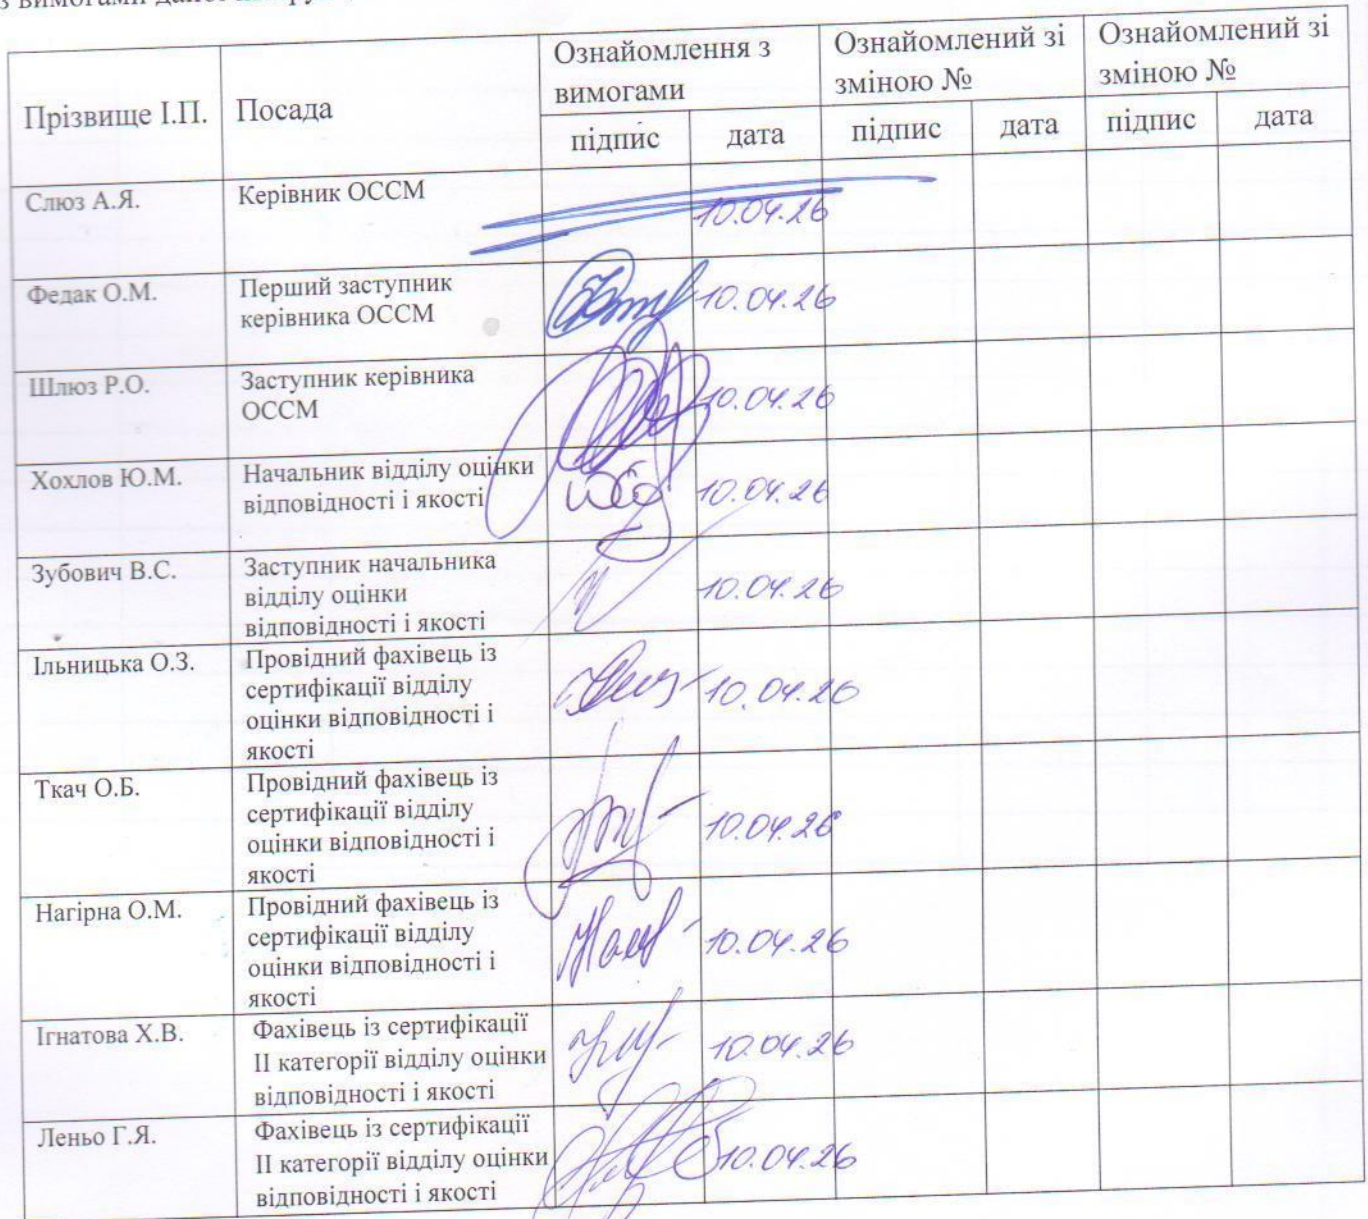 з вимогами даної
Прізвище І.П.
Посада
Ознайомлення з
вимогами
Ознайомлений зі
зміною №
Ознайомлений зі
зміною №
підпис
дата
підпис
дата
підпис
дата
Слюз А.Я.
Керівник ОССМ
10.04.26
Федак О.М.
Перший заступник
керівника ОССМ
10.04.26
Шлюз Р.О.
Заступник керівника
ОССМ
10.04.26
Хохлов Ю.М.
Начальник відділу оцінки
відповідності і якості
10.04.26
Зубович В.С.
Заступник начальника
відділу оцінки
відповідності і якості
10.04.26
Ільницька О.З.
Провідний фахівець із
сертифікації відділу
оцінки відповідності і
якості
10.04.26
Ткач О.Б.
Провідний фахівець із
сертифікації відділу
оцінки відповідності і
якості
10.04.26
Нагірна О.М.
Провідний фахівець із
сертифікації відділу
оцінки відповідності і
якості
10.04.26
Ігнатова Х.В.
Фахівець із сертифікації
ІІ категорії відділу оцінки
відповідності і якості
10.04.26
Леньо Г.Я.
Фахівець із сертифікації
ІІ категорії відділу оцінки
відповідності і якості
10.04.26